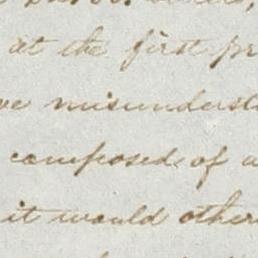 at the first pr
ve misunderst
composed of a
it would other